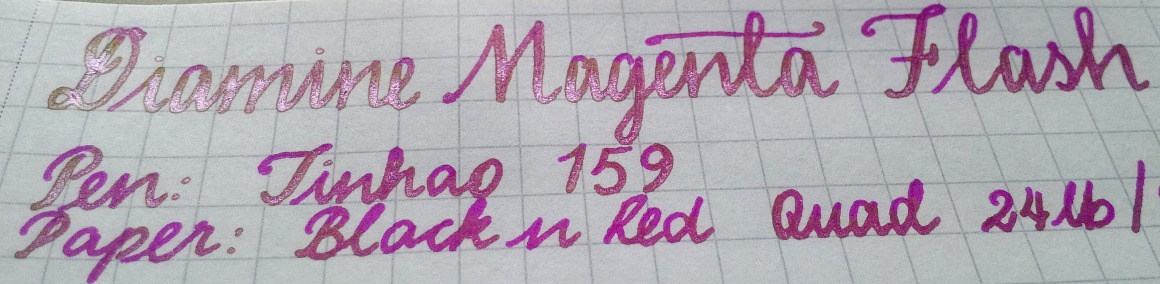 Diamine Magenta Flash
Pen: Jinhao 159
Paper: Black n Red Quad 24lb/